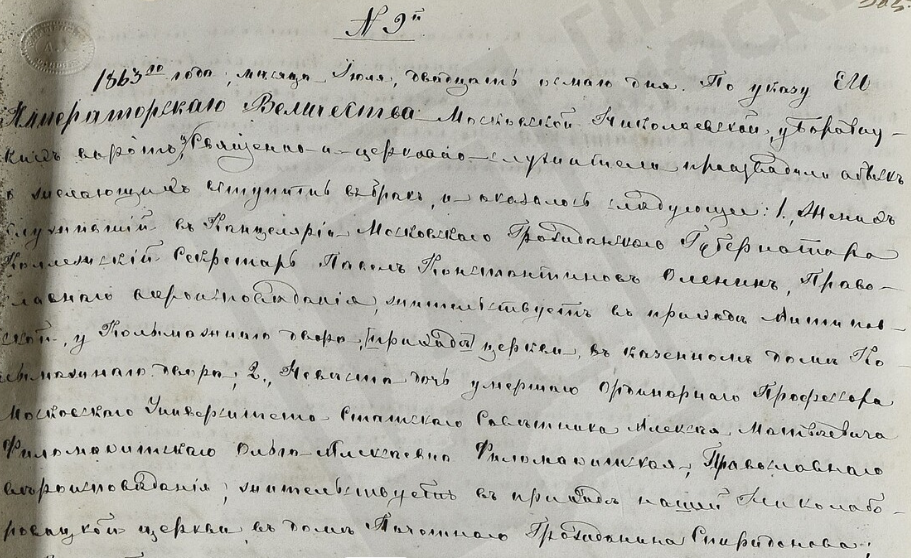 N 9й
1863го года, месяца Июля, двадцать осьмаго дня. По указу ЕГО
Императорскаго Величества Московской Николаевской, у Боровиц-
кихъ воротъ, Священно-и-церковно-служители производили обыскъ
о желающихъ вступить въ бракъ, и оказалось следующее: 1., Женихъ
служащій въ Канцеляріи Московскаго Гражданскаго Губернатора
Коллежскій Секретарь Павелъ Константиновъ Оленинъ, Право-
славнаго вероисповеданія, жительствуетъ въ приходе Антипьев-
ской, у Колымажнаго двора, [приходе] церкви, въ казенномъ доме Ко-
лымажнаго двора; 2., Невеста дочь умершаго Ординарнаго Профессора
Московскаго Университета Статскаго Советника Алексея Матвеевича
Филомафитскаго Ольга Алексеевна Филомафитская, Православнаго
вероисповеданія, жительствуетъ въ приходе нашей Николабо-
ровицкой церкви, въ доме Почотнаго Гражданина Спиридонова;